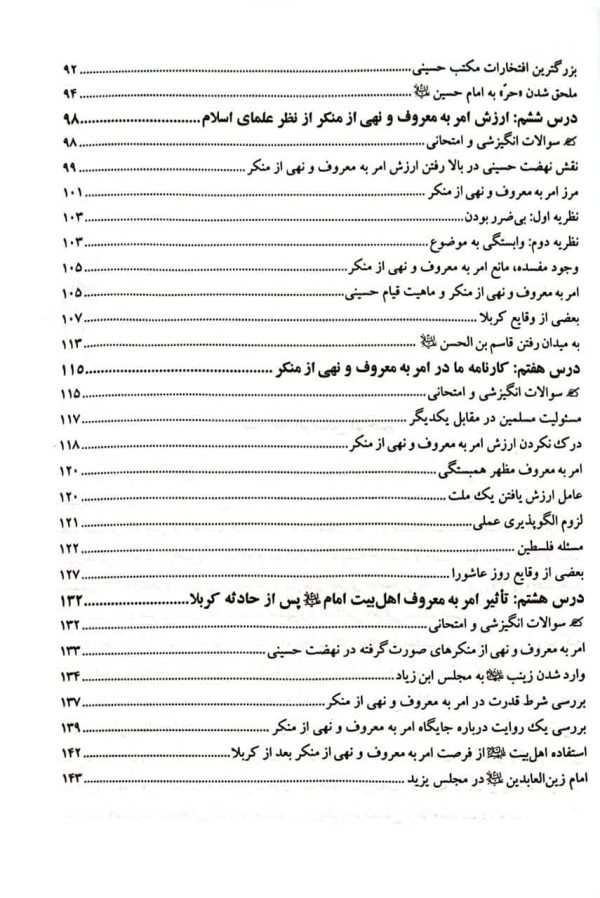 بزرگترین افتخارات مکتب حسینی ۹۲
ملحق شدن «حرّ» به امام حسین ﷷ ۹۴
درس ششم: ارزش امر به معروف و نهی از منکر از نظر علمای اسلام ۹۸
سوالات انگیزشی و امتحانی ۹۸
نقش نهضت حسینی در بالا رفتن ارزش امر به معروف و نهی از منکر ۹۹
مرز امر به معروف و نهی از منکر ۱۰۱
نظریه اول: بی‌ضرر بودن ۱۰۳
نظریه دوم: وابستگی به موضوع ۱۰۳
وجود مفسده، مانع امر به معروف و نهی از منکر ۱۰۵
امر به معروف و نهی از منکر و ماهیت قیام حسینی ۱۰۵
بعضی از وقایع کربلا ۱۰۷
به میدان رفتن قاسم بن الحسن ﷷ ۱۱۳
درس هفتم: کارنامه ما در امر به معروف و نهی از منکر ۱۱۵
سوالات انگیزشی و امتحانی ۱۱۵
مسئولیت مسلمین در مقابل یکدیگر ۱۱۷
درک نکردن ارزش امر به معروف و نهی از منکر ۱۱۸
امر به معروف مظهر همبستگی ۱۲۰
عامل ارزش یافتن یک ملت ۱۲۰
لزوم الگوپذیری عملی ۱۲۱
مسئله فلسطین ۱۲۲
بعضی از وقایع روز عاشورا ۱۲۷
درس هشتم: تأثیر امر به معروف اهل‌بیت امام ﷷ پس از حادثه کربلا ۱۳۲
سوالات انگیزشی و امتحانی ۱۳۲
امر به معروف و نهی از منکرهای صورت‌گرفته در نهضت حسینی ۱۳۳
وارد شدن زینب به مجلس ابن زیاد ۱۳۴
بررسی شرط قدرت در امر به معروف و نهی از منکر ۱۳۷
بررسی یک روایت درباره جایگاه امر به معروف و نهی از منکر ۱۳۹
استفاده اهل‌بیت از فرصت امر به معروف و نهی از منکر بعد از کربلا ۱۴۲
امام زین‌العابدین ﷷ در مجلس یزید ۱۴۳